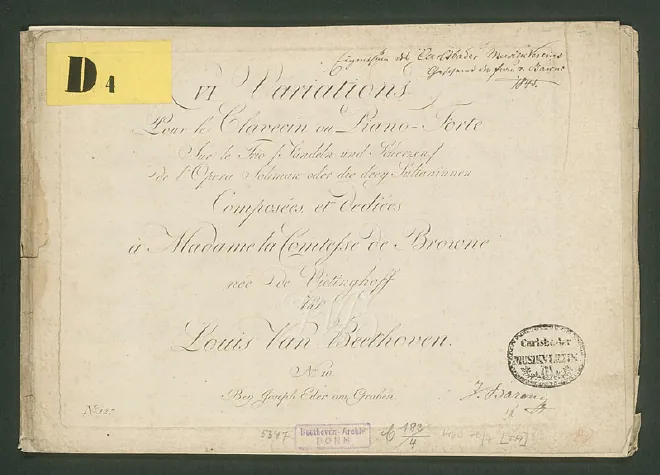 D 4
Eigenthum des Carlsbader Musikvereins
1845.
VI Variations
Pour le Clavecin ou Piano-Forte
Sur le Trio (Tändeln und Scherzen)
de l'Opera Soliman oder die drey Sultaninnen
Composées et dediées
à Madame la Comtesse de Browne
née de Vietinghoff
Par
Louis Van Beethoven.
No 10
Bey Joseph Eder am Graben.
Carlsbader
MUSIKVEREIN
No 127
5347
Beethoven-Archiv
BONN